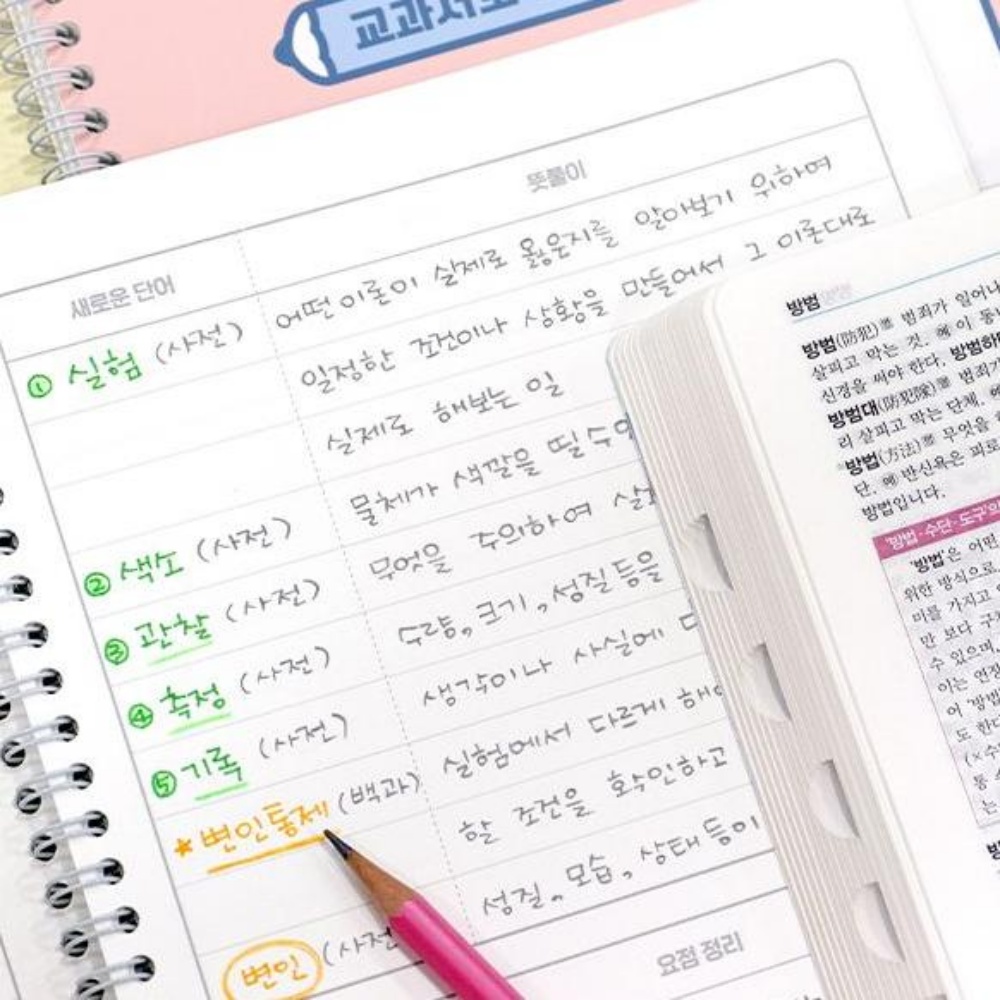 교과서
뜻풀이
새로운 단어
① 실험 (사전) 어떤 이론이 실제로 옳은지를 알아보기 위하여
일정한 조건이나 상황을 만들어서 그 이론대로
실제로 해보는 일
② 색소 (사전) 물체가 색깔을 띨 수
③ 관찰 (사전) 무엇을 주의하여
④ 측정 (사전) 수량, 크기, 성질 등을
⑤ 기록 (사전) 생각이나 사실에
★ 변인통제 (백과) 실험에서 다르게
할 조건을 확인하고
변인 (사전 성질, 모습, 상태 등이
요점 정리
방범
방범(防犯) 범죄가 일어나
살피고 막는 것. 예 이 동
신경을 써야 한다. 방범하
방범대(防犯隊) 범죄가
리 살피고 막는 단체.
방법(方法) 무엇을
단. 예 반신욕은 피로
방법입니다.
'방법·수단·도구'의
'방법'은 어떤
위한 방식으로,
미를 가지고
만 보다 구
수 있으며,
이는 연장
어 '방법
도 한다
(×수
통
는